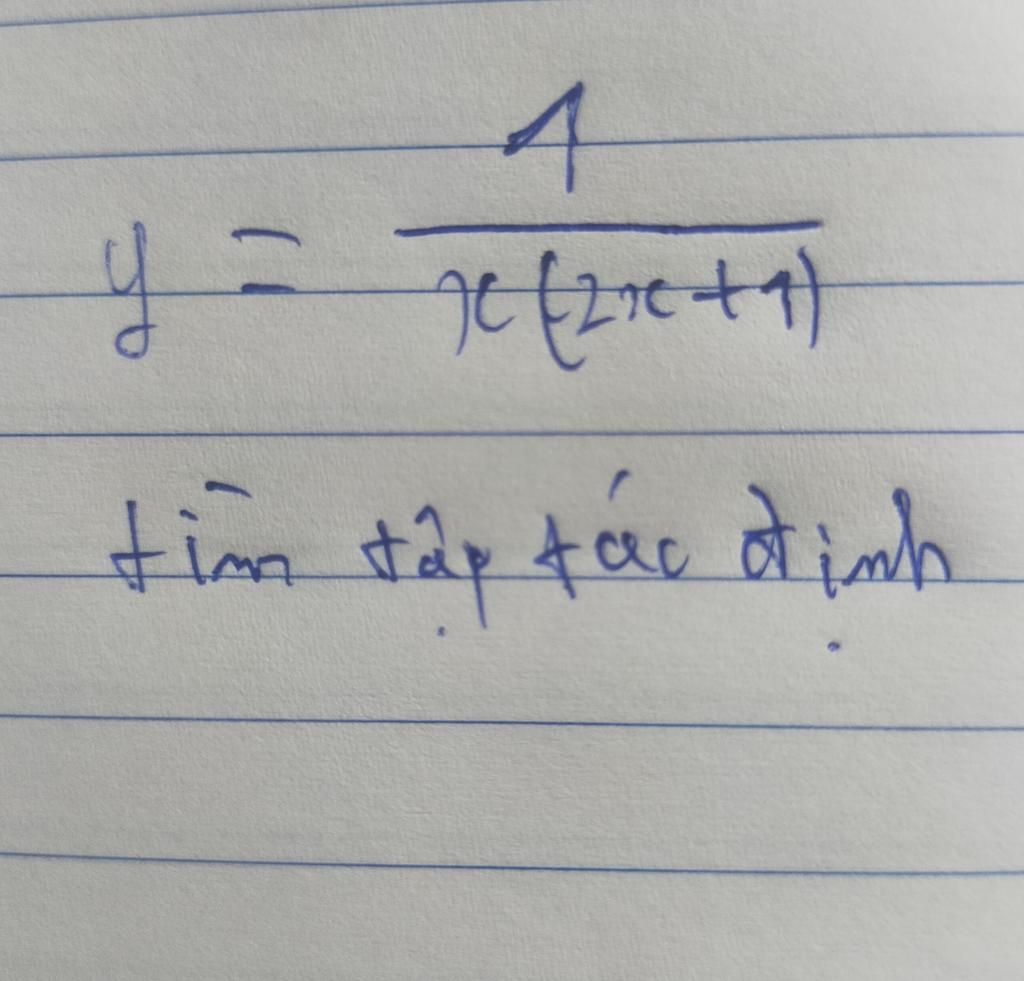 y = 1 / x(2x+1)
tìm tập tác định